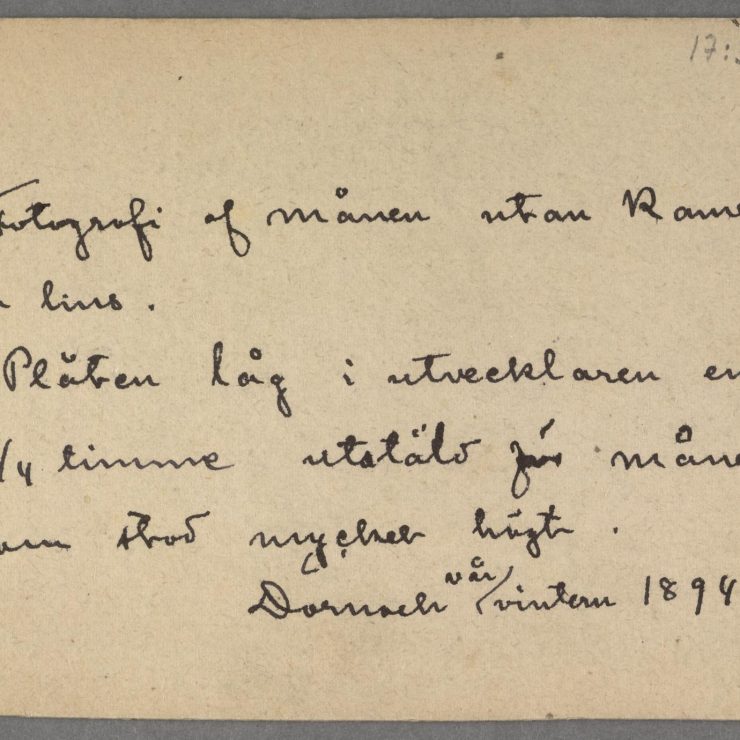 17:
Fotografi af månen utan Kame
lins.
Plåten låg i utvecklaren en
/4 timme utstäld för måne
om stod mycket högt.
vår/
Dornach vintern 1894